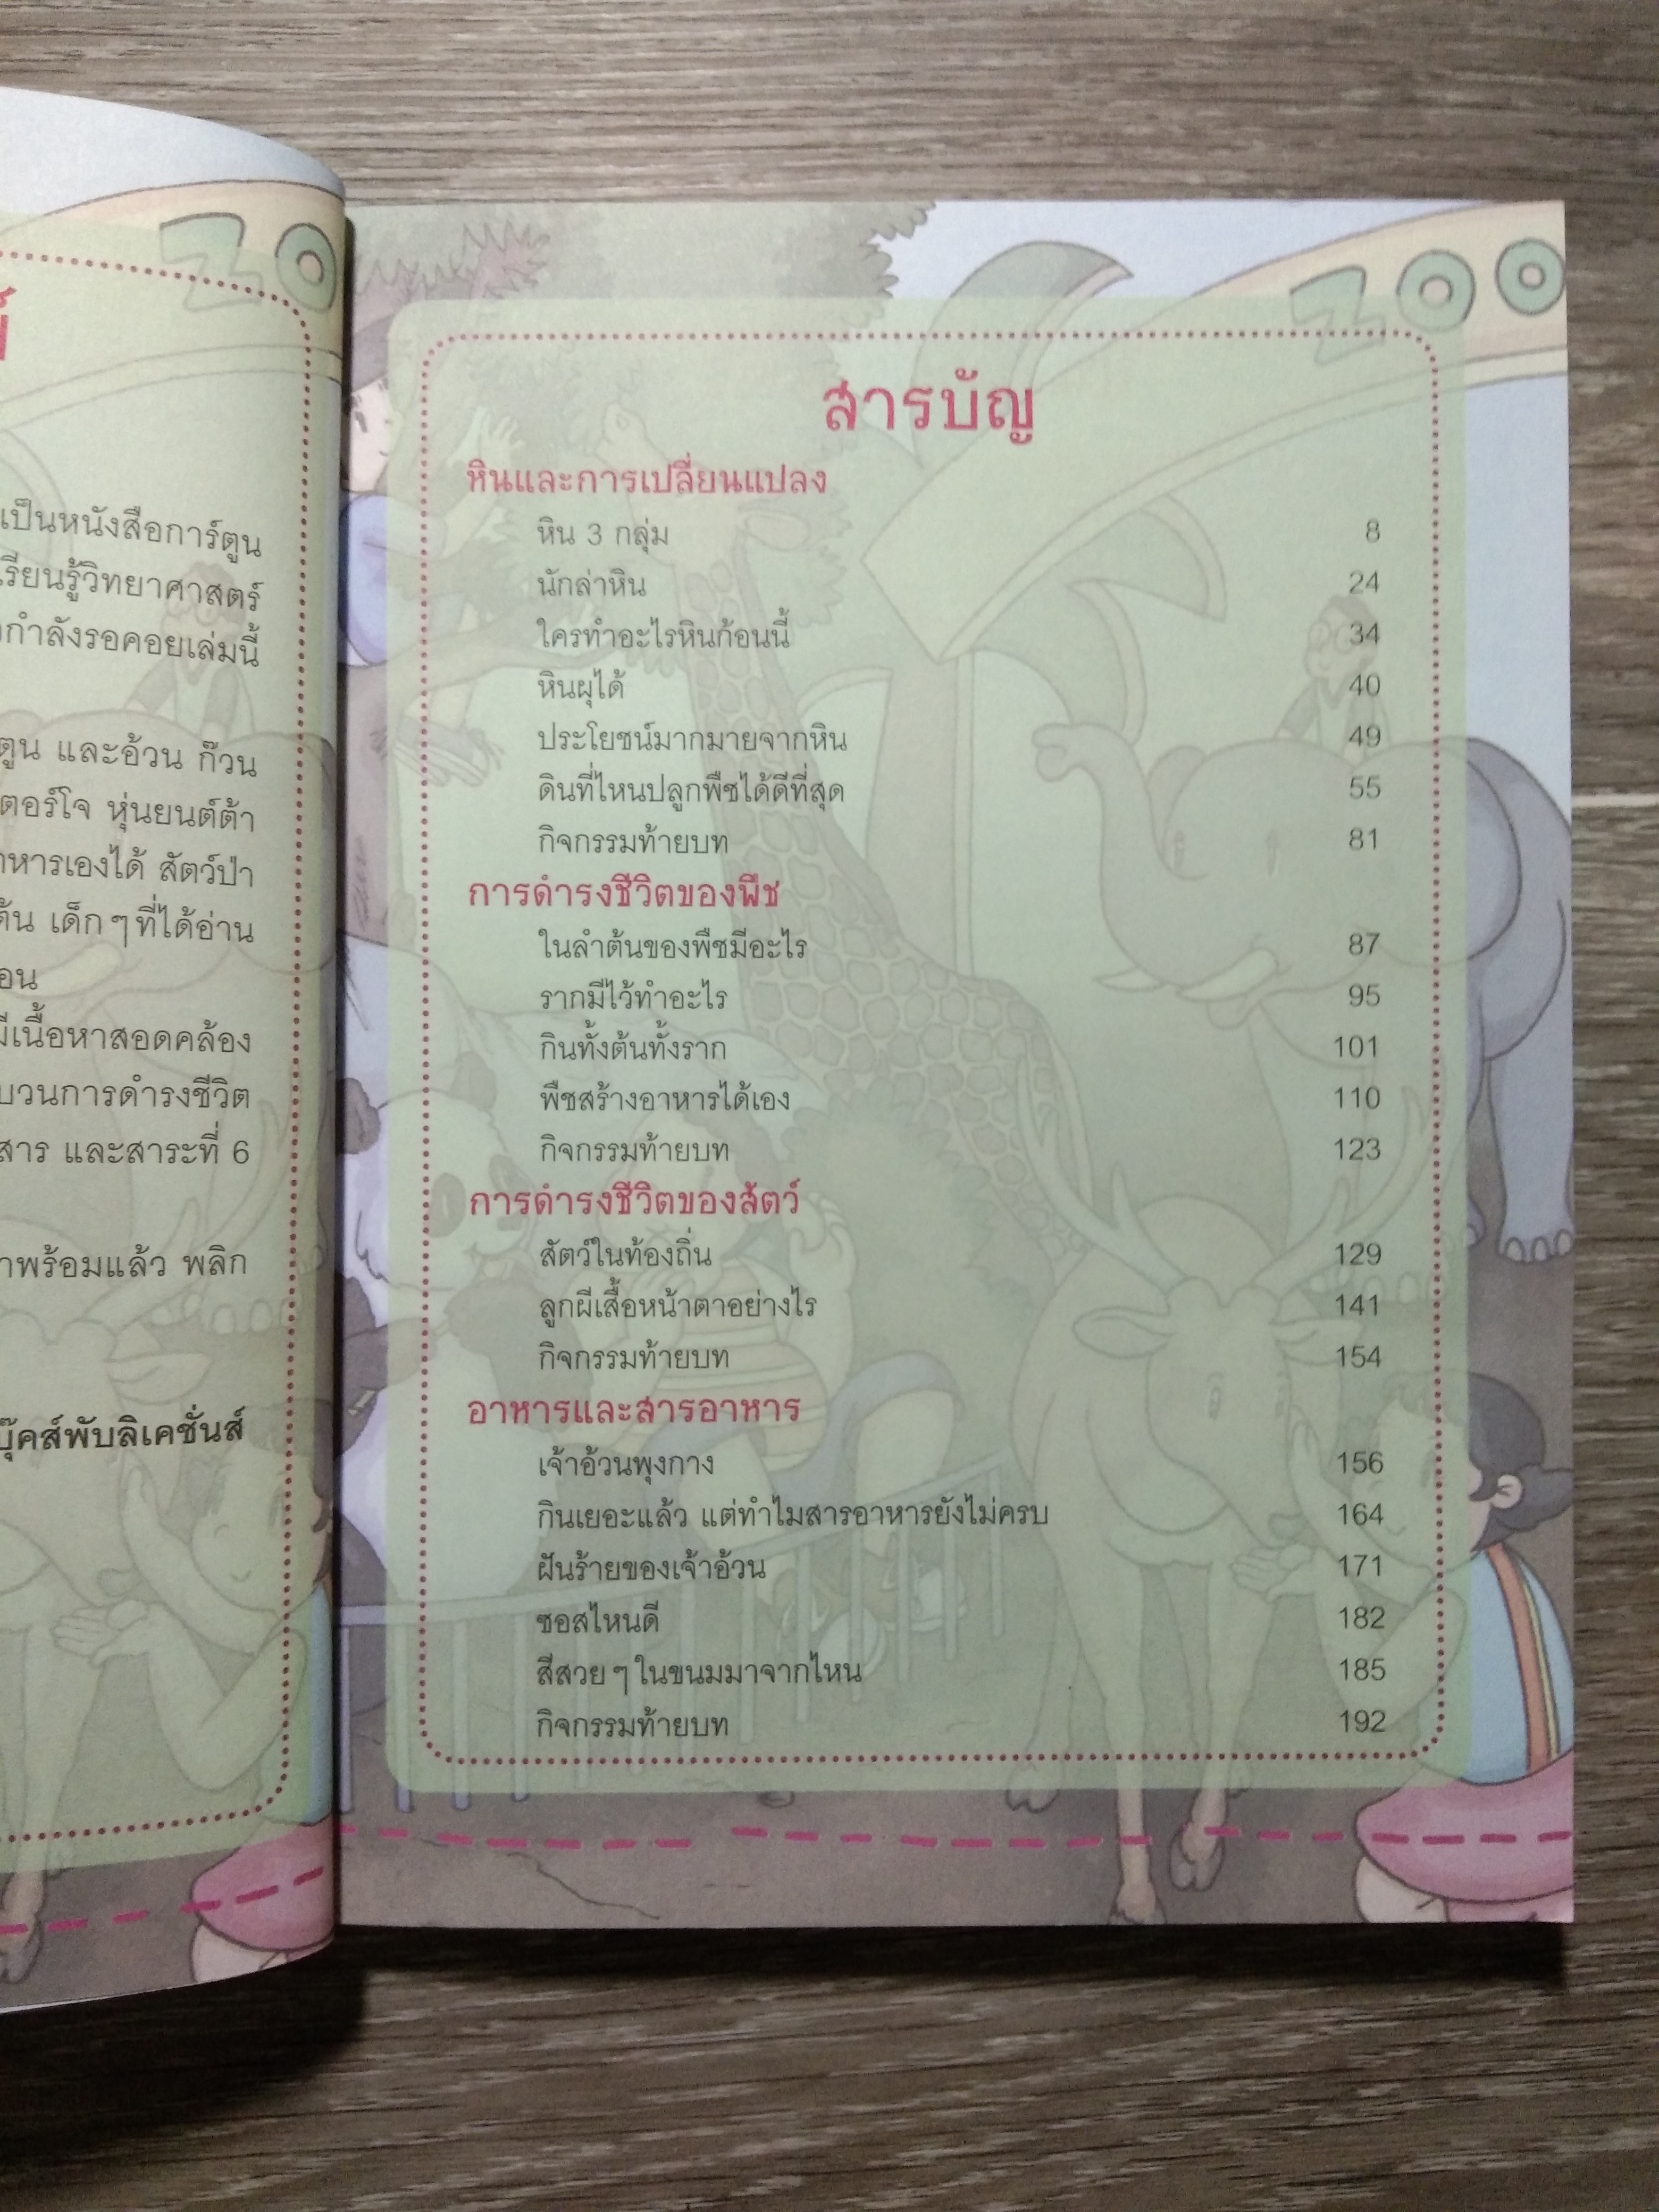 ZO
เป็นหนังสือการ์ตูน
เรียนรู้วิทยาศาสตร์
กำลังรอคอยเล่มนี้
ตูน และอ้วน ก๊วน
ตอร์โจ หุ่นยนต์ต้า
าหารเองได้ สัตว์ป่า
ต้น เด็กๆที่ได้อ่าน
อน
มีเนื้อหาสอดคล้อง
บวนการดำรงชีวิต
สาร และสาระที่ 6
าพร้อมแล้ว พลิก
บุ๊คส์พับลิเคชั่นส์
ZOO
สารบัญ
หินและการเปลี่ยนแปลง
หิน 3 กลุ่ม 8
นักล่าหิน 24
ใครทำอะไรหินก้อนนี้ 34
หินผุได้ 40
ประโยชน์มากมายจากหิน 49
ดินที่ไหนปลูกพืชได้ดีที่สุด 55
กิจกรรมท้ายบท 81
การดำรงชีวิตของพืช
ในลำต้นของพืชมีอะไร 87
รากมีไว้ทำอะไร 95
กินทั้งต้นทั้งราก 101
พืชสร้างอาหารได้เอง 110
กิจกรรมท้ายบท 123
การดำรงชีวิตของสัตว์
สัตว์ในท้องถิ่น 129
ลูกผีเสื้อหน้าตาอย่างไร 141
กิจกรรมท้ายบท 154
อาหารและสารอาหาร
เจ้าอ้วนพุงกาง 156
กินเยอะแล้ว แต่ทำไมสารอาหารยังไม่ครบ 164
ฝันร้ายของเจ้าอ้วน 171
ซอสไหนดี 182
สีสวยๆในขนมมาจากไหน 185
กิจกรรมท้ายบท 192